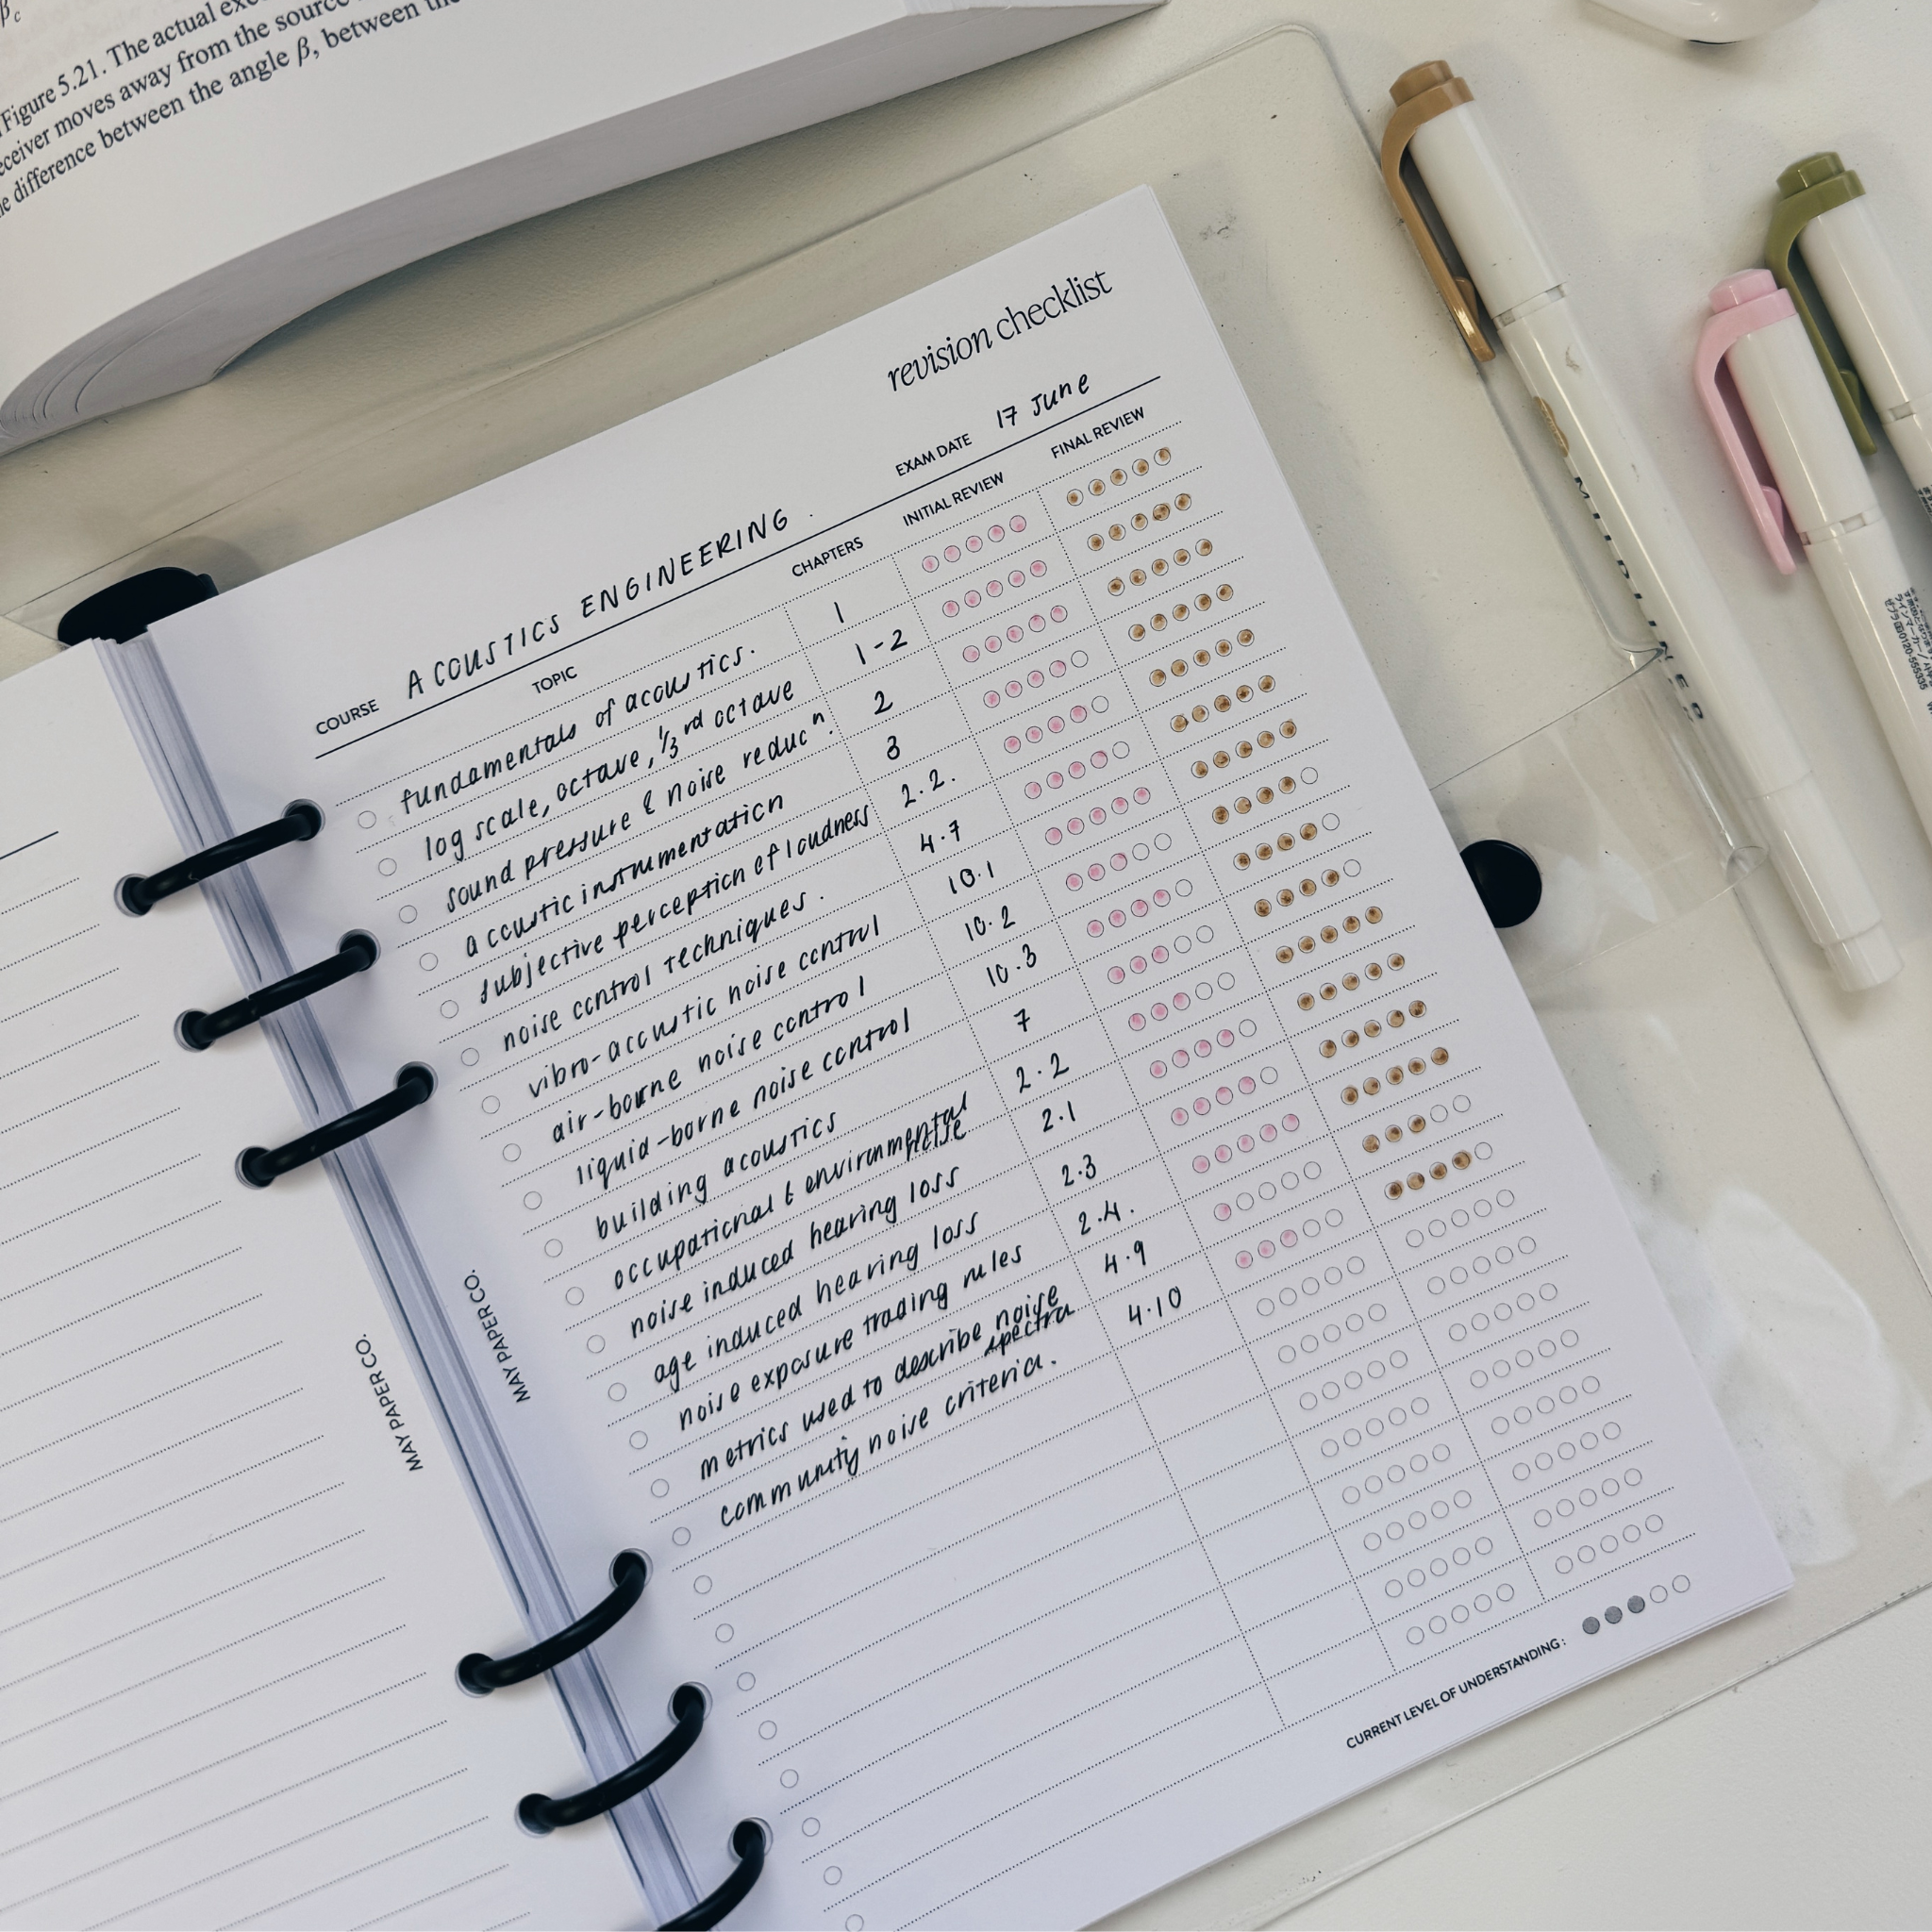 βc
Figure 5.21. The actual
receiver moves away from the source
the difference between the angle β, between the
revision checklist
COURSE ACOUSTICS ENGINEERING. EXAM DATE 17 June
TOPIC CHAPTERS INITIAL REVIEW FINAL REVIEW
fundamentals of acoustics. 1
log scale, octave, 1/3 rd octave 1-2
sound pressure & noise reducⁿ. 2
acoustic instrumentation 3
subjective perception of loudness 2.2.
noise control techniques. 4.7
vibro-acoustic noise control 10.1
air-bourne noise control 10.2
liquid-borne noise control 10.3
building acoustics 7
occupational & environmental noise 2.2
noise induced hearing loss 2.1
age induced hearing loss 2.3
noise exposure trading rules 2.4.
metrics used to describe noise spectra 4.9
community noise criteria. 4.10
CURRENT LEVEL OF UNDERSTANDING:
MAY PAPER CO.
MAY PAPER CO.
MILDLINER